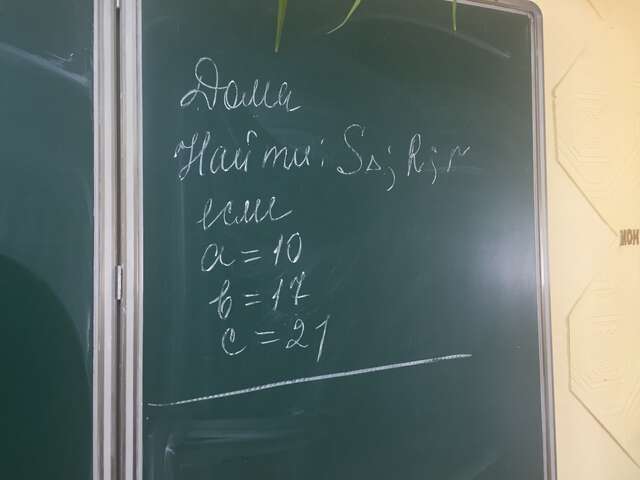 Дома
Найти: S△; R; r
если
a = 10
b = 17
c = 21